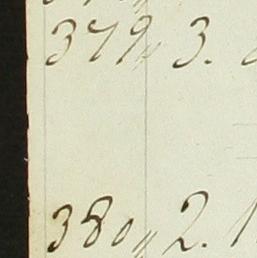 379,, 3.
380,, 2.